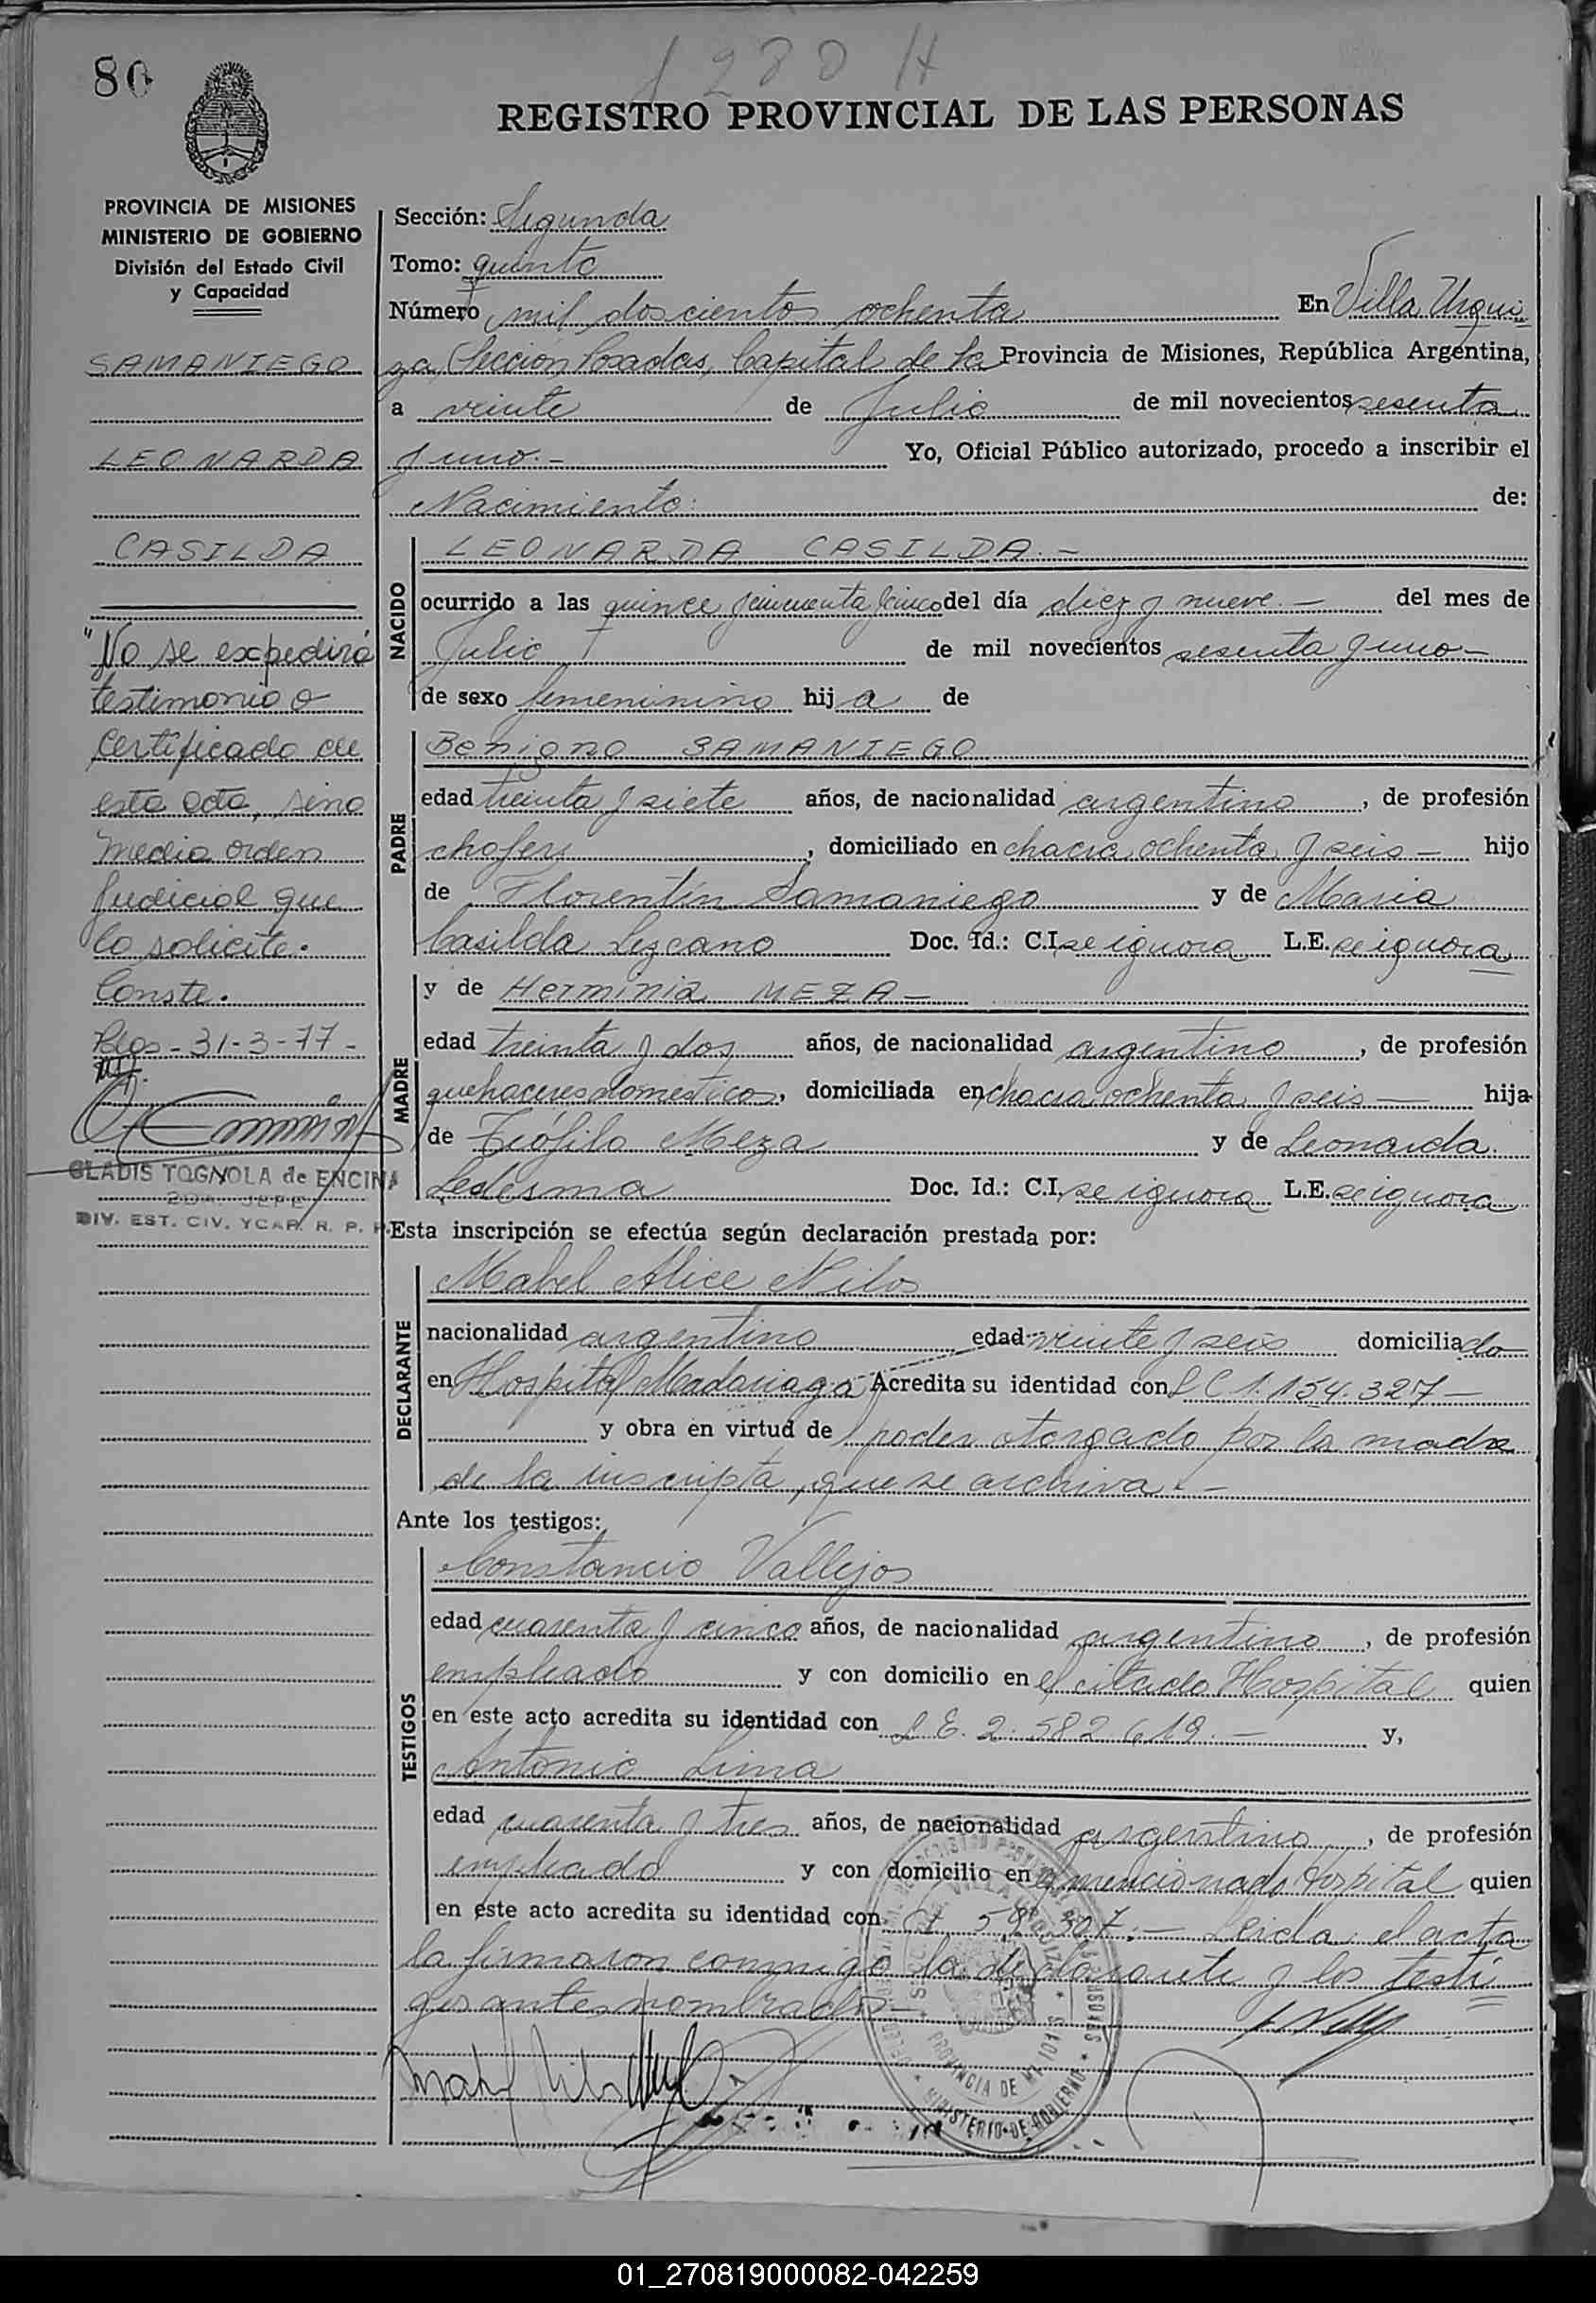 80
1280 H
REGISTRO PROVINCIAL DE LAS PERSONAS
PROVINCIA DE MISIONES
MINISTERIO DE GOBIERNO
División del Estado Civil
y Capacidad
SAMANIEGO
LEONARDA
CASILDA
"No se expedirá
testimonio o
certificado de
esta acta, sino
media orden
judicial que
lo solicite.
Conste.
Pdas - 31-3-77 -
GLADIS TOGNOLA de ENCINA
2DA. JEFE
DIV. EST. CIV. YCAP. R. P. P.
Sección: Segunda
Tomo: quinto
Número mil doscientos ochenta En Villa Urqui
za, Sección Posadas, Capital de la Provincia de Misiones, República Argentina,
a veinte de Julio de mil novecientos sesenta
y uno.- Yo, Oficial Público autorizado, procedo a inscribir el
Nacimiento: de:
NACIDO
LEONARDA CASILDA.-
ocurrido a las quince y cincuenta y cinco del día diez y nueve.- del mes de
Julio de mil novecientos sesenta y uno-
de sexo femenino hij a de
PADRE
Benigno SAMANIEGO
edad treinta y siete años, de nacionalidad argentino, de profesión
chofer, domiciliado en chacra ochenta y seis- hijo
de Florentín Samaniego y de Maria
Casilda Lezcano Doc. Id.: C.I. se ignora L.E. se ignora
MADRE
y de Herminia MEZA-
edad treinta y dos años, de nacionalidad argentino, de profesión
quehaceres domesticos, domiciliada en chacra ochenta y seis- hija
de Teófilo Meza y de Leonarda
Ledesma Doc. Id.: C.I. se ignora L.E. se ignora
Esta inscripción se efectúa según declaración prestada por:
DECLARANTE
Mabel Alice Nilos
nacionalidad argentino edad veinte y seis domiciliado
en Hospital Madariaga Acredita su identidad con L C 1.154.327-
y obra en virtud de poder otorgado por la madre
de la inscripta, que se archiva.-
Ante los testigos:
TESTIGOS
Constancio Vallejos
edad cuarenta y cinco años, de nacionalidad argentino, de profesión
empleado y con domicilio en el citado Hospital quien
en este acto acredita su identidad con L E. 2.582.619.- y,
Antonio Lima
edad cuarenta y tres años, de nacionalidad argentino, de profesión
empleado y con domicilio en el mencionado Hospital quien
en este acto acredita su identidad con 307.- Leida el acta
la firmaron conmigo la declarante y los testi
gos antes nombrados-
PROVINCIA DE MISIONES
MINISTERIO DE GOBIERNO
01_270819000082-042259